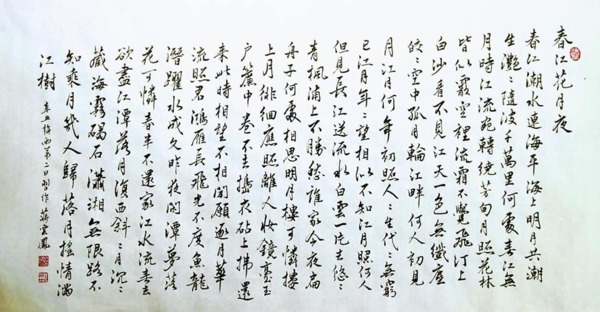 春江花月夜
春江潮水連海平海上明月共潮
生灩〻隨波千萬里何處春江無
月時江流宛轉繞芳甸月照花林
皆似霰空裡流霜不覺飛汀上
白沙看不見江天一色無纖塵
皎〻空中孤月輪江畔何人初見
月江月何年初照人〻生代〻無窮
已江月年〻望相似不知江月照何人
但見長江送流水白雲一片去悠〻
青楓浦上不勝愁誰家今夜扁
舟子何處相思明月樓可憐樓
上月徘徊應照離人妝鏡臺玉
戶簾中卷不去擣衣砧上拂還
來此時相望不相聞願逐月華
流照君鴻雁長飛光不度魚龍
潛躍水成文昨夜閑潭夢落
花可憐春半不還家江水流春去
欲盡江潭落月復西斜〻月沉〻
藏海霧碣石瀟湘無限路不
知乘月幾人歸落月搖情滿
江樹 辛丑梅雨第二日習作 蔣雲鳳